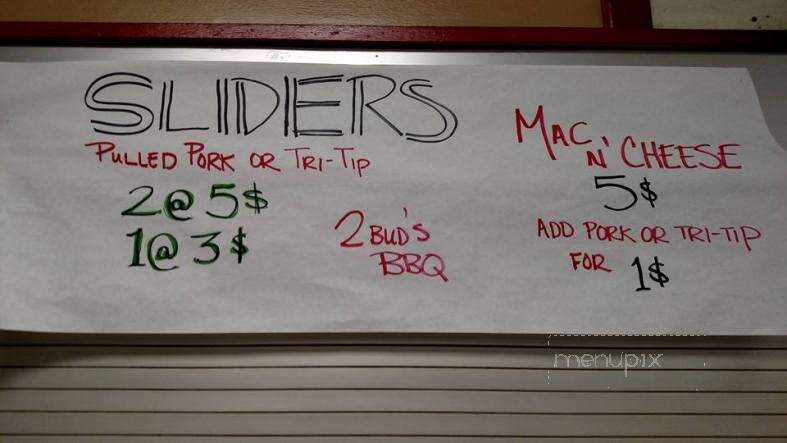 SLIDERS
PULLED PORK OR TRI-TIP
2@5$
1@3$
2 BUD'S
BBQ
MAC
N' CHEESE
5$
ADD PORK OR TRI-TIP
FOR 1$
menupix